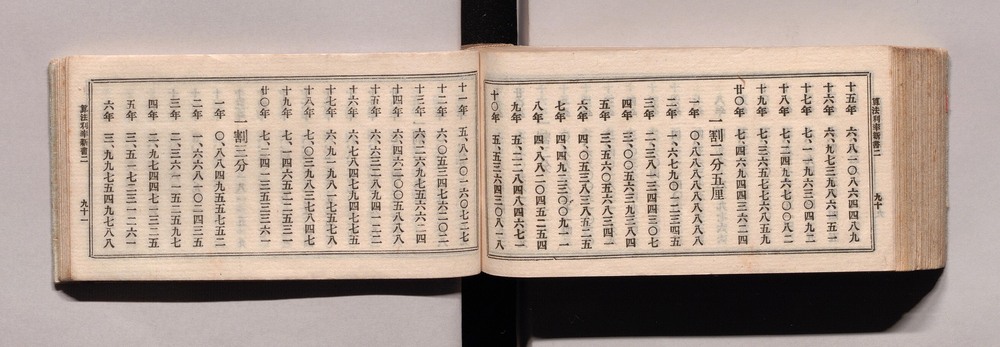 算法利率新書二　九十
十五年　六、八一〇八六四四八九
十六年　六、九七三九八六一五一
十七年　七、一一九六三〇四九二
十八年　七、二四九六七〇〇八二
十九年　七、三六五七七六八五九
廿〇年　七、四六九四四三六二四
一割二分五厘
一年　〇、八八八八八八八八八
二年　一、六七九〇一二三四五
三年　二、三八一三四四三〇七
四年　三、〇〇五六三九三八四
五年　三、五六〇五六八三四一
六年　四、〇五三八三八五二五
七年　四、四九二三〇〇九一一
八年　四、八八二〇四五二五四
九年　五、二二八四八四六七一
十〇年　五、五三六四三〇八一八
十一年　五、八一〇一六〇七二七
十二年　六、〇五三四七六二〇二
十三年　六、二六九七五六六二四
十四年　六、四六二〇〇五八八八
十五年　六、六三二八九四一二二
十六年　六、七八四七九四七七五
十七年　六、九一九八一七五七七
十八年　七、〇三九八三七八四七
十九年　七、一四六五二二五三一
廿〇年　七、二四一三五三三六一
一割三分
一年　〇、八八四九五五七五二
二年　一、六六八一〇二四三五
三年　二、三六一一五二五九七
四年　二、九七四四七一三二五
五年　三、五一七二三一二六一
六年　三、九九七五四九七八八
算法利率新書二　九十一